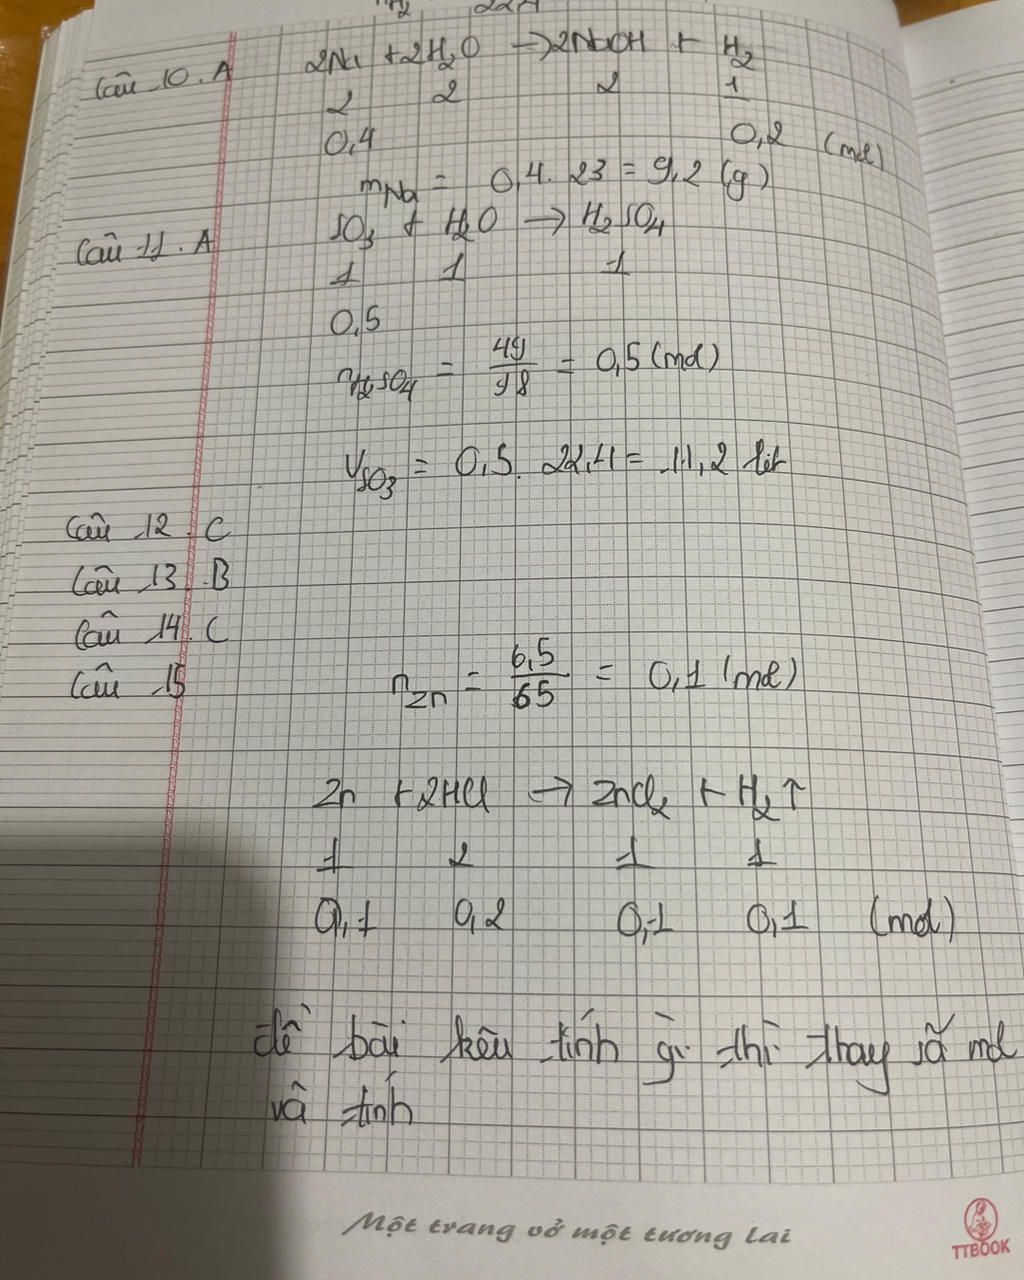 Câu 10. A 2Na + 2H₂O → 2NaOH + H₂
2 2 2 1
0,4 0,2 (mol)
mNa = 0,4. 23 = 9,2 (g)
Câu 11. A SO₃ + H₂O → H₂SO₄
1 1 1
0,5
nH₂SO₄ = 49/98 = 0,5 (mol)
VSO₃ = 0,5. 22,4 = 11,2 lít
Câu 12. C
Câu 13. B
Câu 14. C
Câu 15 nZn = 6,5/65 = 0,1 (mol)
Zn + 2HCl → ZnCl₂ + H₂↑
1 2 1 1
0,1 0,2 0,1 0,1 (mol)
đề bài kêu tính gì thì thay số mol
và tính
Một trang vở một tương lai
TTBOOK